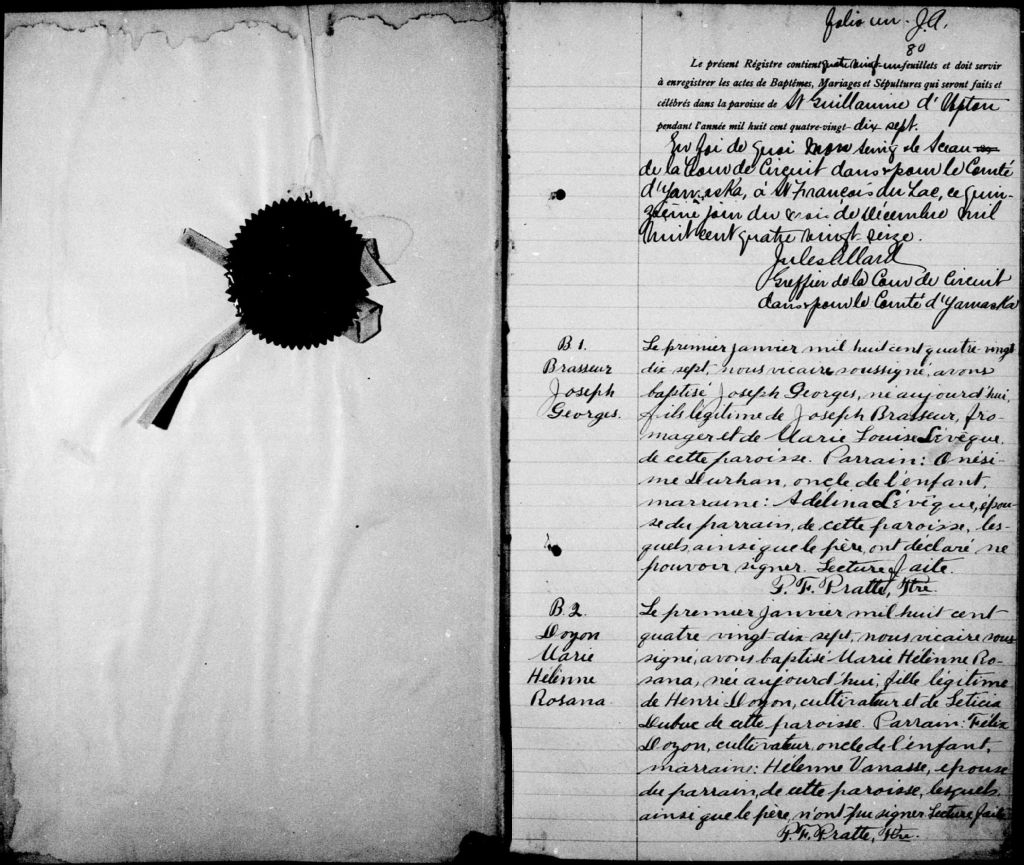 folio un. J.A.
80
Le présent Régistre contient quatre vingt-un feuillets et doit servir
à enregistrer les actes de Baptêmes, Mariages et Sépultures qui seront faits et
célébrés dans la paroisse de St Guillaume d'Upton
pendant l'année mil huit cent quatre-vingt-dix sept.
En foi de quoi mon seing & le Sceau
de la Cour de Circuit dans & pour le Comté
d'Yamaska, à St François du Lac, ce quin-
zième jour du mois de Décembre mil
huit cent quatre vingt-seize.
Jules Allard
Greffier de la Cour de Circuit
dans & pour le Comté d'Yamaska
B 1.
Brasseur
Joseph
Georges.
Le premier janvier mil huit cent quatre-vingt
dix sept, nous vicaire soussigné, avons
baptisé Joseph Georges, né aujourd'hui,
fils légitime de Joseph Brasseur, fro-
mager et de Marie Louise Lévêque
de cette paroisse. Parrain: Onési-
me Durhan, oncle de l'enfant,
marraine: Adélina Lévêque, épou-
se du parrain, de cette paroisse, les-
quels, ainsi que le père, ont déclaré ne
pouvoir signer. Lecture faite.
P. F. Pratte, Ptre
B 2.
Doyon
Marie
Hélènne
Rosana
Le premier janvier mil huit cent
quatre vingt-dix-sept, nous vicaire sous
signé, avons baptisé Marie Hélènne Ro-
sana, née aujourd'hui, fille légitime
de Henri Doyon, cultivateur et de Leticia
Dubuc de cette paroisse. Parrain: Félix
Doyon, cultivateur, oncle de l'enfant,
marraine: Hélenne Vanasse, épouse
du parrain, de cette paroisse, lesquels,
ainsi que le père, n'ont pu signer Lecture faite
P. F. Pratte, Ptre.